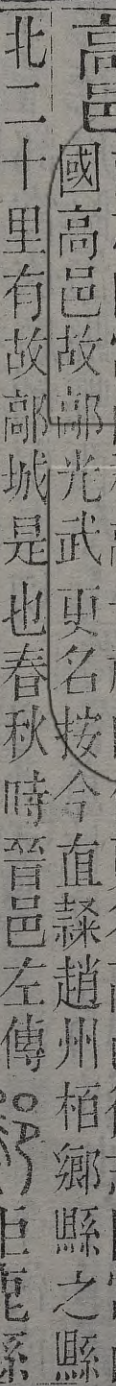 高邑
國高邑故鄗光武更名按今直隸趙州栢鄉縣之縣
北二十里有故鄗城是也春秋時晉邑左傳